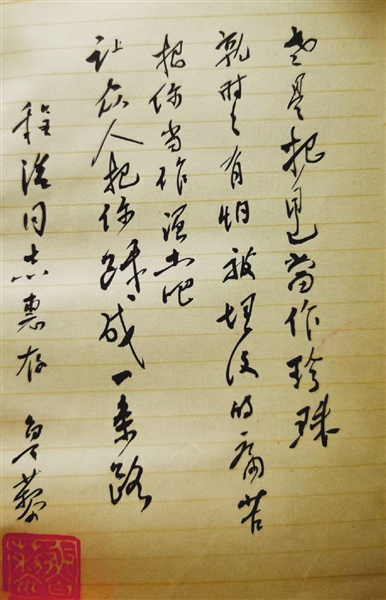 老是把自己當作珍珠
就时々有怕被埋没的痛苦
把你当作泥土吧
让众人把你踩成一条路
程同志惠存 鲁藜